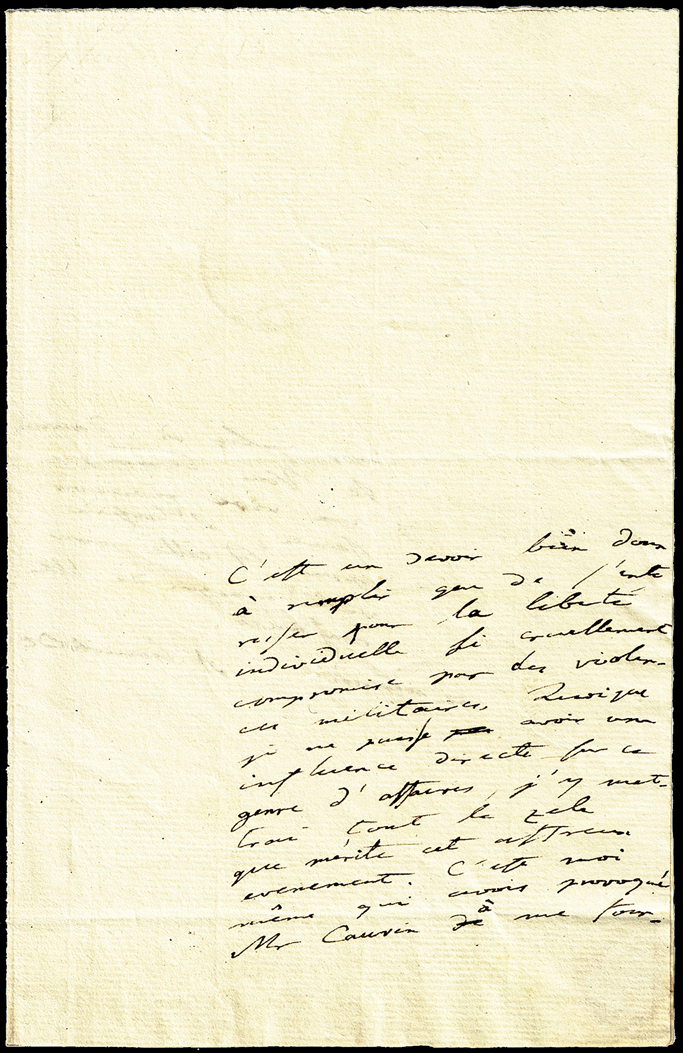 C'est un devoir bien doux
à remplir que de s'inté
resser pour la liberté
individuelle si cruellement
compromise par des violen-
ces militaires. Quoique
je ne puisse avoir une
influence directe sur ce
genre d'affaires, j'y met-
trai tout le zele
que mérite cet affreux
evenement. C'est moi
même qui avois provoqué
Mr Cauvin à me four-